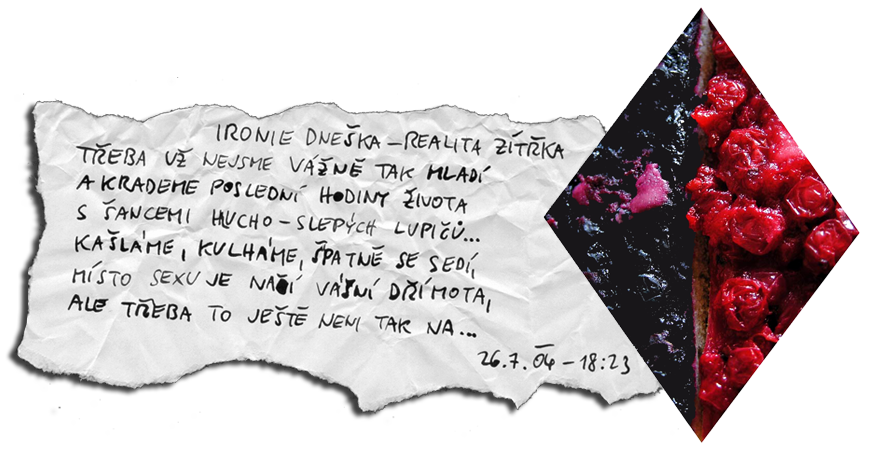 IRONIE DNEŠKA – REALITA ZÍTŘKA
TŘEBA UŽ NEJSME VÁŽNĚ TAK MLADÍ
A KRADEME POSLEDNÍ HODINY ŽIVOTA
S ŠANCEMI HUCHO-SLEPÝCH LUPIČŮ...
KAŠLÁME, KULHÁME, ŠPATNĚ SE SEDÍ,
MÍSTO SEXU JE NAŠÍ VÁŠNÍ DŘÍMOTA,
ALE TŘEBA TO JEŠTĚ NENI TAK NA...
26.7.04 – 18:23